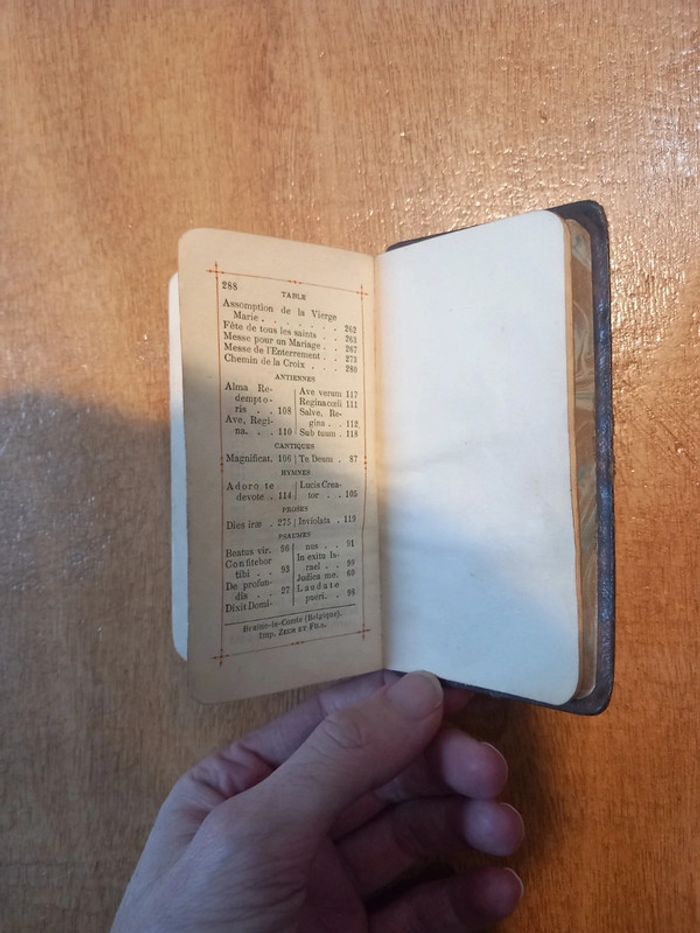 288
TABLE
Assomption de la Vierge
Marie . . . . . . . 262
Fête de tous les saints . . 263
Messe pour un Mariage . . 267
Messe de l'Enterrement . . 273
Chemin de la Croix . . . 280
ANTIENNES
Alma Re-
dempto-
ris . . 108
Ave, Regi-
na. . . 110
Ave verum 117
Regina cœli 111
Salve, Re-
gina . . 112
Sub tuum . 118
CANTIQUES
Magnificat. 106 | Te Deum . 87
HYMNES
Adoro te
devote . 114
Lucis Crea-
tor . . 105
PROSES
Dies iræ . 275 | Inviolata . 119
PSAUMES
Beatus vir. 96
Confitebor
tibi . . 93
De profon-
dis . . 27
Dixit Domi-
nus . . 91
In exitu Is-
rael . . 99
Judica me. 60
Laudate
pueri. . 98
Braine-le-Comte (Belgique).
Imp. ZECH ET FILS.